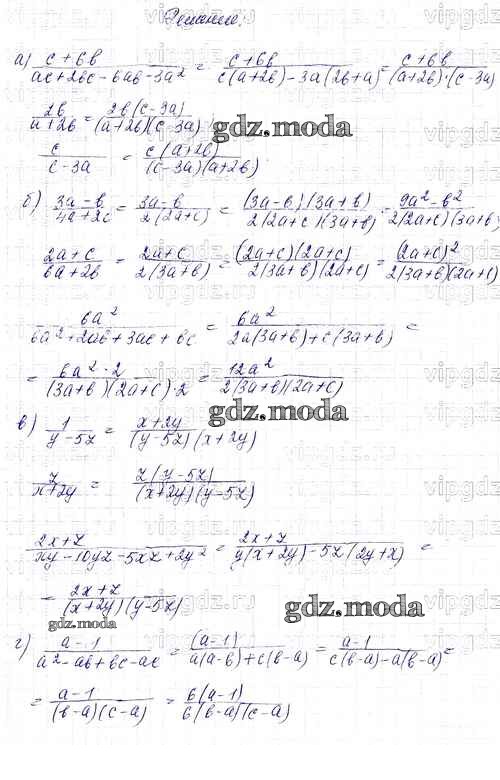 Решение.
а) (c+6b)/(ac+2bc-6ab-3a²) = (c+6b)/(c(a+2b)-3a(2b+a)) = (c+6b)/((a+2b)·(c-3a)
2b/(a+2b) = 2b(c-3a)/((a+2b)(c-3a))
gdz.moda
c/(c-3a) = c(a+2b)/((c-3a)(a+2b))
б) (3a-b)/(4a+2c) = (3a-b)/(2(2a+c)) = (3a-b)(3a+b)/(2(2a+c)(3a+b)) = (9a²-b²)/(2(2a+c)(3a+b))
(2a+c)/(6a+2b) = (2a+c)/(2(3a+b)) = (2a+c)(2a+c)/(2(3a+b)(2a+c)) = (2a+c)²/(2(3a+b)(2a+c))
6a²/(6a²+2ab+3ac+bc) = 6a²/(2a(3a+b)+c(3a+b)) =
= 6a²·2/((3a+b)(2a+c)·2) = 12a²/(2(3a+b)(2a+c))
gdz.moda
в) 1/(y-5z) = (x+2y)/((y-5z)(x+2y))
z/(x+2y) = z(y-5z)/((x+2y)(y-5z))
(2x+z)/(xy-10yz-5xz+2y²) = (2x+z)/(y(x+2y)-5z(2y+x)) =
= (2x+z)/((x+2y)(y-5z))
gdz.moda
gdz.moda
г) (a-1)/(a²-ab+bc-ac) = (a-1)/(a(a-b)+c(b-a)) = (a-1)/(c(b-a)-a(b-a)) =
= (a-1)/((b-a)(c-a)) = 6(a-1)/(6(b-a)(c-a))